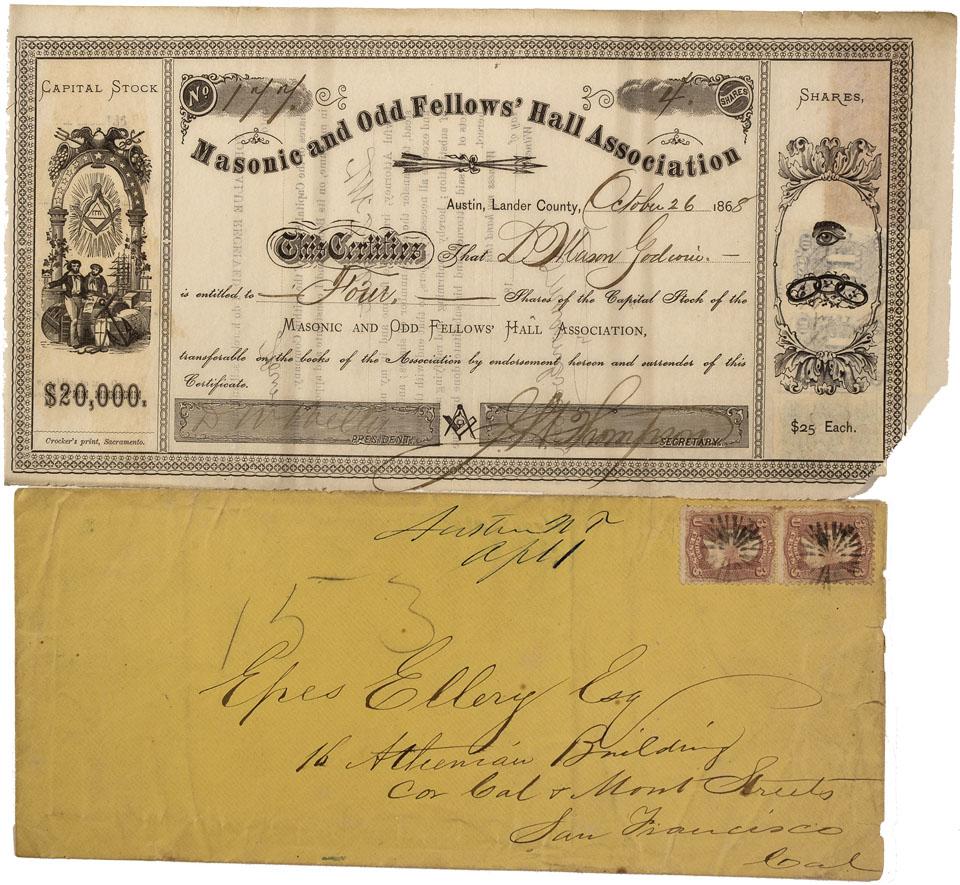 CAPITAL STOCK
$20,000.
Crocker's print, Sacramento.
No 177.
4. SHARES
Masonic and Odd Fellows' Hall Association
Austin, Lander County, October 26 1868
This Certifies That D Mason Godwin.
is entitled to Four, Shares of the Capital Stock of the
MASONIC AND ODD FELLOWS' HALL ASSOCIATION,
transferable on the books of the Association by endorsement hereon and surrender of this
Certificate.
PRESIDENT.
J. A. Thompson
SECRETARY.
SHARES,
$25 Each.
Austin N T
Apl 1
15 3
Epes Ellery Esq
16 Athenian Building
cor Cal & Mont Streets
San Francisco
Cal